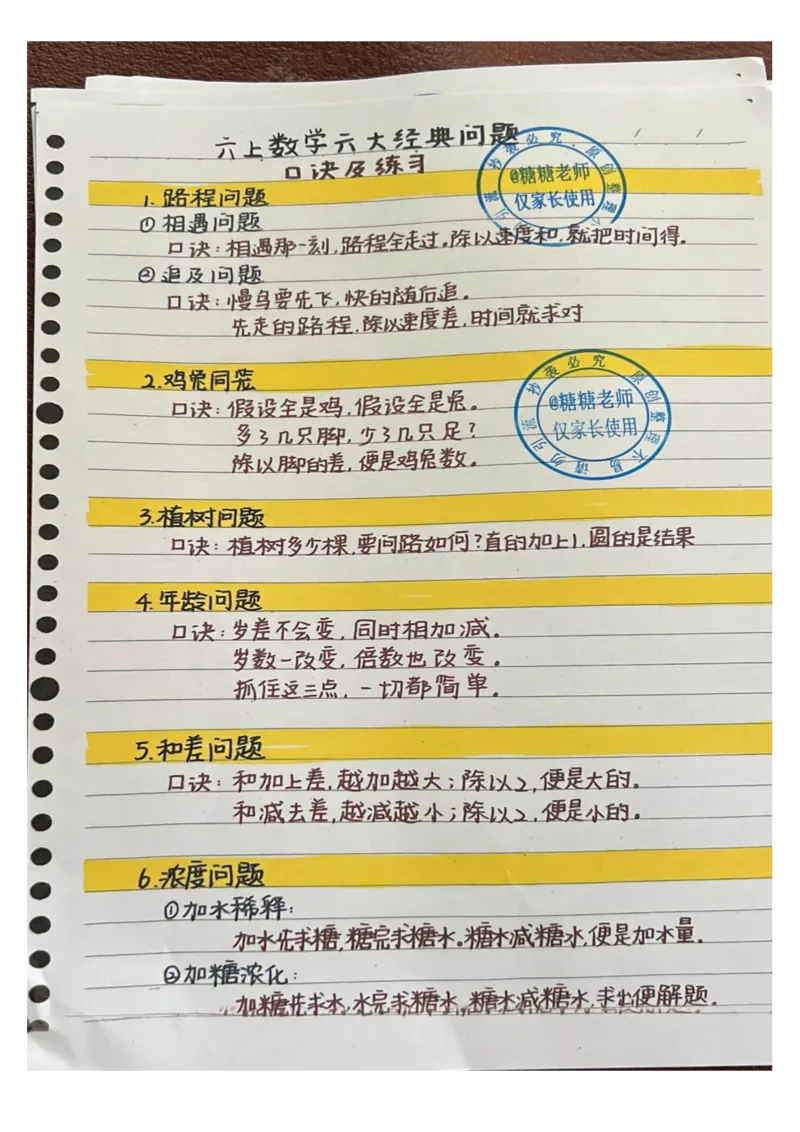 六上数学六大经典问题
口诀及练习
1.路程问题
①相遇问题
口诀:相遇那一刻,路程全走过。除以速度和,就把时间得。
②追及问题
口诀:慢鸟要先飞,快的随后追。
先走的路程,除以速度差,时间就求对
2.鸡兔同笼
口诀:假设全是鸡,假设全是兔。
多了几只脚,少了几只足?
除以脚的差,便是鸡兔数。
3.植树问题
口诀:植树多少棵,要问路如何?直的加上1,圆的是结果
4.年龄问题
口诀:岁差不会变,同时相加减。
岁数一改变,倍数也改变。
抓住这三点,一切都简单。
5.和差问题
口诀:和加上差,越加越大;除以2,便是大的。
和减去差,越减越小;除以2,便是小的。
6.浓度问题
①加水稀释:
加水先求糖,糖完求糖水。糖水减糖水,便是加水量。
②加糖浓化:
加糖先求水,水完求糖水,糖水减糖水,求出便解题。
@糖糖老师
仅家长使用
抄袭必究
原创整理
@糖糖老师
仅家长使用
请勿引流
抄袭必究
原创整理不易